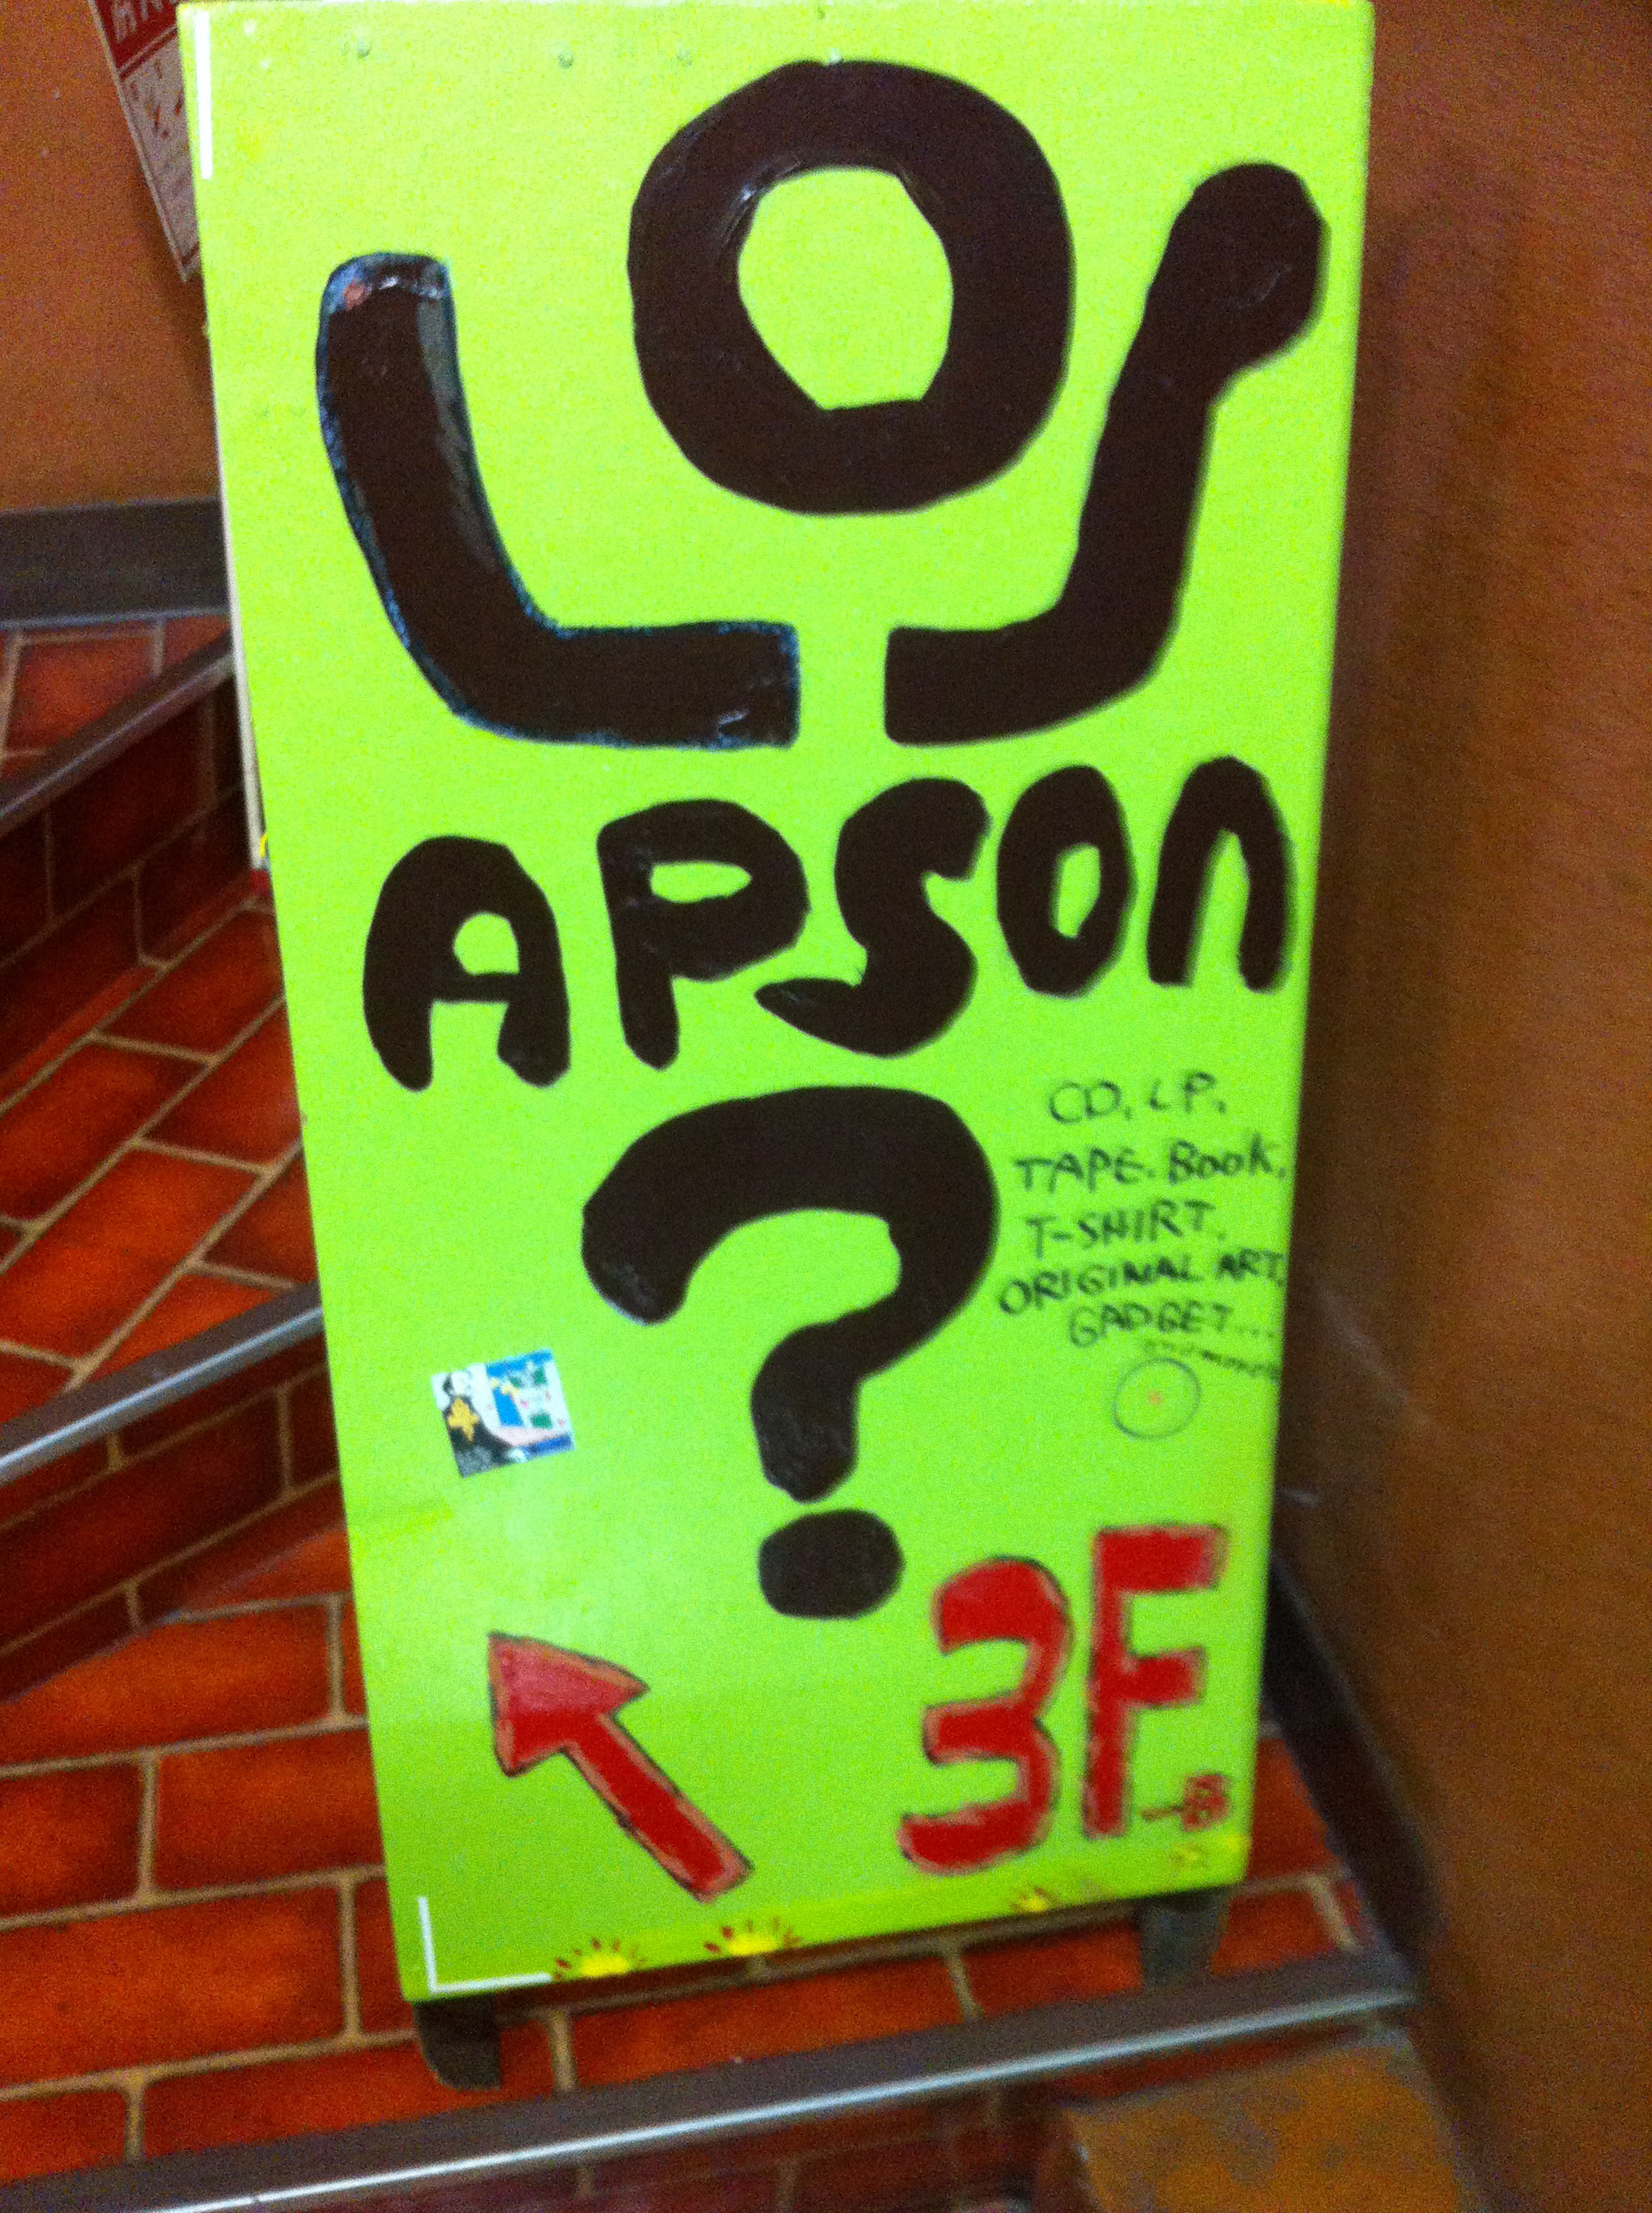 LOS
APSON
?
CD, LP,
TAPE. Book,
T-SHIRT.
ORIGINAL ART,
GADGET....
and more
3F